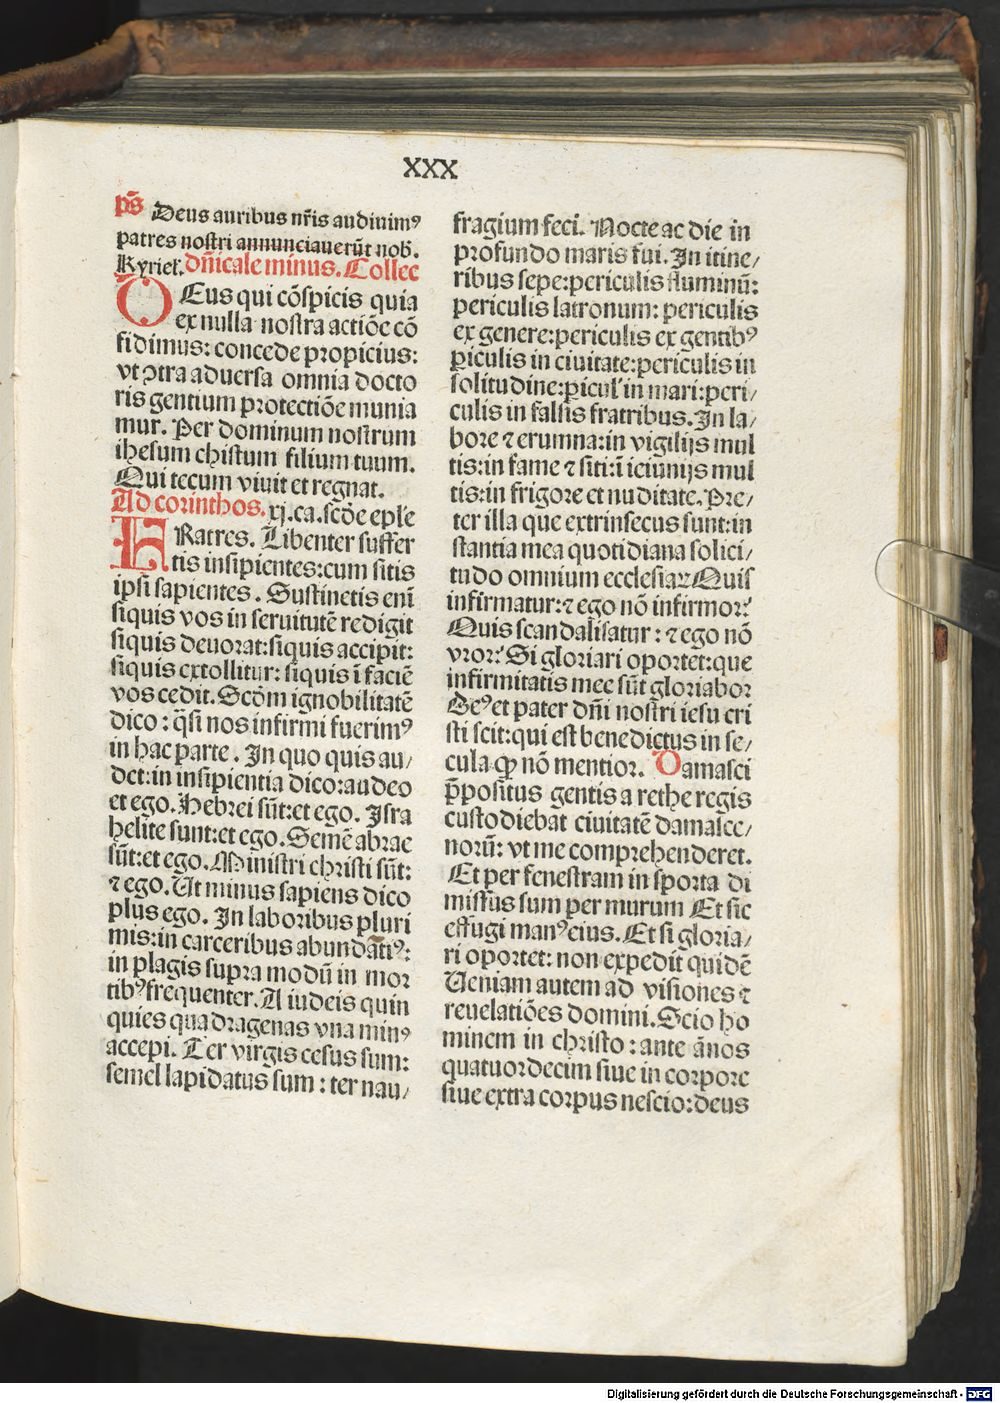 XXX
ps̄ Deus auribus nr̄is audiuimꝰ
patres nostri annunciauerūt nob̄.
Kyriel̄. dn̄icale minus. Collec
DEus qui cōspicis quia
ex nulla nostra actiōe cō
fidimus: concede propicius:
vt ꝯtra aduersa omnia docto
ris gentium protectiōe munia
mur. Per dominum nostrum
ihesum christum filium tuum.
Qui tecum viuit et regnat.
Ad corinthos. xj. ca. scd̄e epl̄e
FRatres. Libenter suffer
tis insipientes: cum sitis
ipsi sapientes. Sustinetis enī
siquis vos in seruitutē redigit
siquis deuorat: siquis accipit:
siquis extollitur: siquis ī faciē
vos cedit. Scd̄m ignobilitatē
dico: q̄si nos infirmi fuerimꝰ
in hac parte. In quo quis au/
det: in insipientia dico: audeo
et ego. Hebrei sūt: et ego. Isra
helite sunt: et ego. Semē abrae
sūt: et ego. Ministri christi sūt:
⁊ ego. Ut minus sapiens dico
plus ego. In laboribus pluri
mis: in carceribus abundātiꝰ:
in plagis supra modū in mor
tibꝰ frequenter. A iudeis quin
quies quadragenas vna minꝰ
accepi. Ter virgis cesus sum:
semel lapidatus sum: ter nau/
fragium feci. Nocte ac die in
profundo maris fui. In itine/
ribus sepe: periculis fluminū:
periculis latronum: periculis
ex genere: periculis ex gentibꝰ
ꝑiculis in ciuitate: periculis in
solitudine: ꝑicul' in mari: peri/
culis in falsis fratribus. In la/
bore ⁊ erumna: in vigilijs mul
tis: in fame ⁊ siti: ī ieiunijs mul
tis: in frigore et nuditate. Pre/
ter illa que extrinsecus sunt: in
stantia mea quotidiana solici/
tudo omnium ecclesiaꝝ Quis
infirmatur: ⁊ ego nō infirmor?
Quis scandalisatur: ⁊ ego nō
vror? Si gloriari oportet: que
infirmitatis mee sūt gloriabor
Deꝰ et pater dn̄i nostri iesu cri
sti scit: qui est benedictus in se/
cula ꝙ nō mentior. Damasci
p̄positus gentis arethe regis
custodiebat ciuitatē damasce/
norū: vt me comprehenderet.
Et per fenestram in sporta di
missus sum per murum Et sic
effugi manꝰ eius. Et si gloria/
ri oportet: non expedit quidē
Ueniam autem ad visiones ⁊
reuelatiōes domini. Scio ho
minem in christo: ante ānos
quatuordecim siue in corpore
siue extra corpus nescio: deus
Digitalisierung gefördert durch die Deutsche Forschungsgemeinschaft - DFG